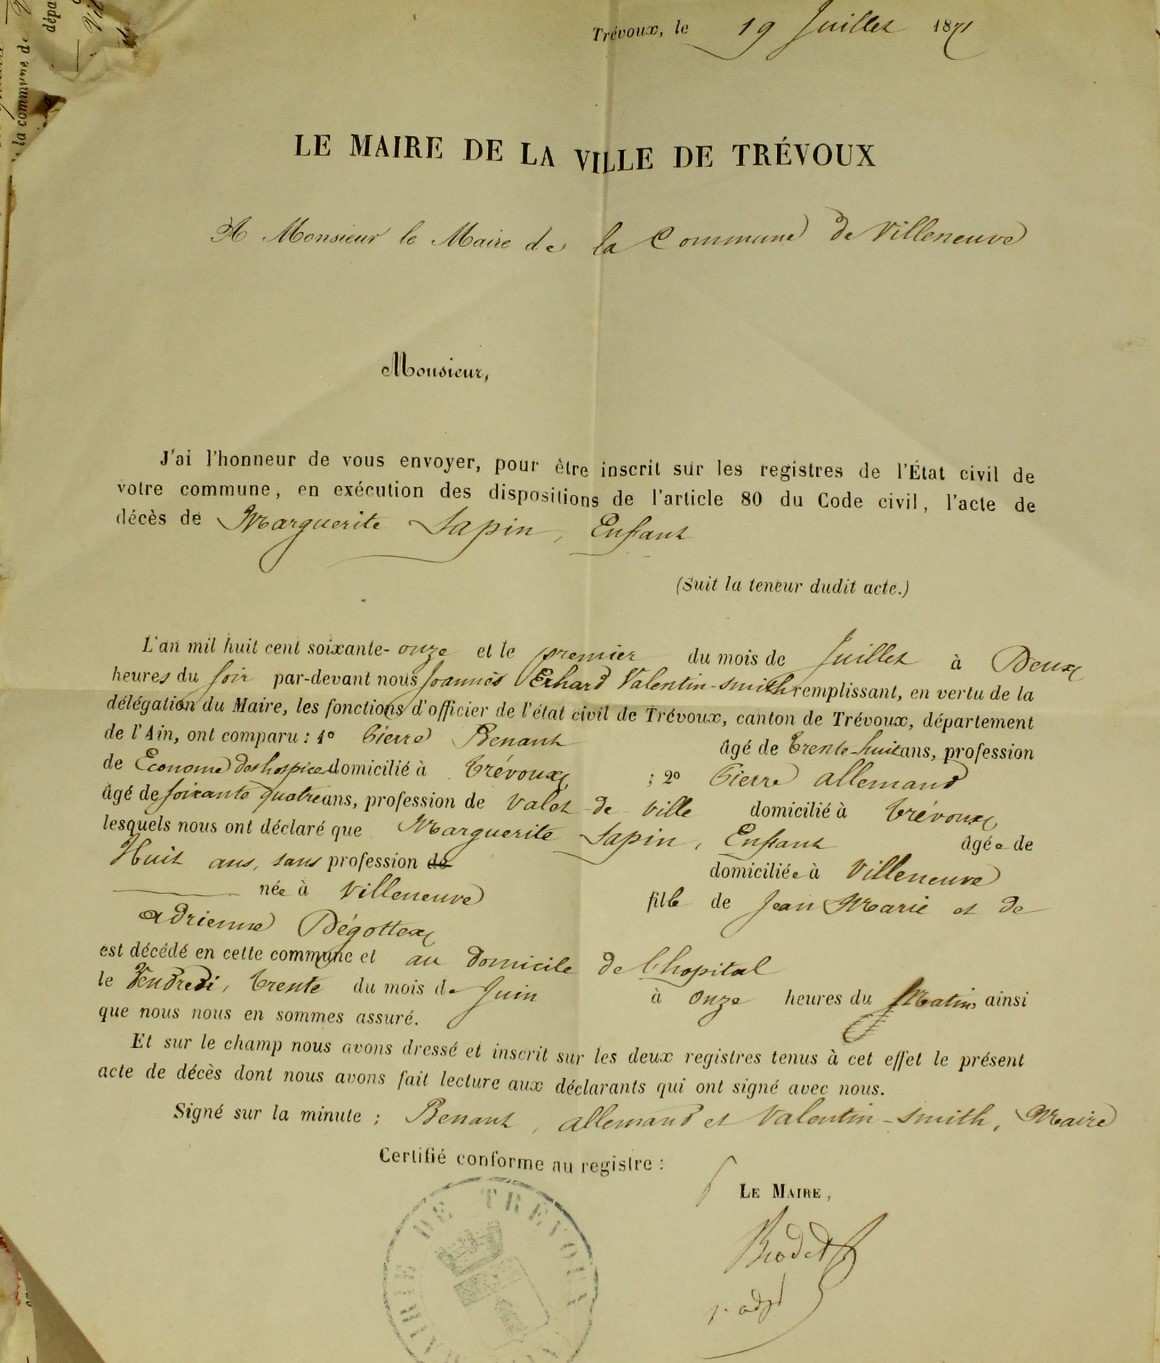 la commune de
dépa
Trévoux, le 19 Juillet 1871
LE MAIRE DE LA VILLE DE TRÉVOUX
A Monsieur le Maire de la Commune de Villeneuve
Monsieur,
J'ai l'honneur de vous envoyer, pour être inscrit sur les registres de l'État civil de
votre commune, en exécution des dispositions de l'article 80 du Code civil, l'acte de
décès de Marguerite Sapin, Enfant
(Suit la teneur dudit acte.)
L'an mil huit cent soixante-onze et le premier du mois de Juillet à Deux
heures du soir par-devant nous Joannès Erhard Valentin-Smith remplissant, en vertu de la
délégation du Maire, les fonctions d'officier de l'état civil de Trévoux, canton de Trévoux, département
de l'Ain, ont comparu : 1º Pierre Benant âgé de trente-huit ans, profession
de Econome des hospices domicilié à Trévoux ; 2º Pierre Allemand
âgé de soixante quatre ans, profession de Valet de ville domicilié à Trévoux
lesquels nous ont déclaré que Marguerite Sapin, Enfant âgée de
Huit ans, sans profession de domiciliée à Villeneuve
née à Villeneuve fille de Jean Marie et de
Adrienne Dégottex
est décédé en cette commune et au domicile de l'hopital
le Vendredi, trente du mois de Juin à onze heures du Matin, ainsi
que nous nous en sommes assuré.
Et sur le champ nous avons dressé et inscrit sur les deux registres tenus à cet effet le présent
acte de décès dont nous avons fait lecture aux déclarants qui ont signé avec nous.
Signé sur la minute : Benant, Allemand et Valentin-Smith, Maire
Certifié conforme au registre :
LE MAIRE,
MAIRIE DE TREVOUX
Brodet
1er adjt